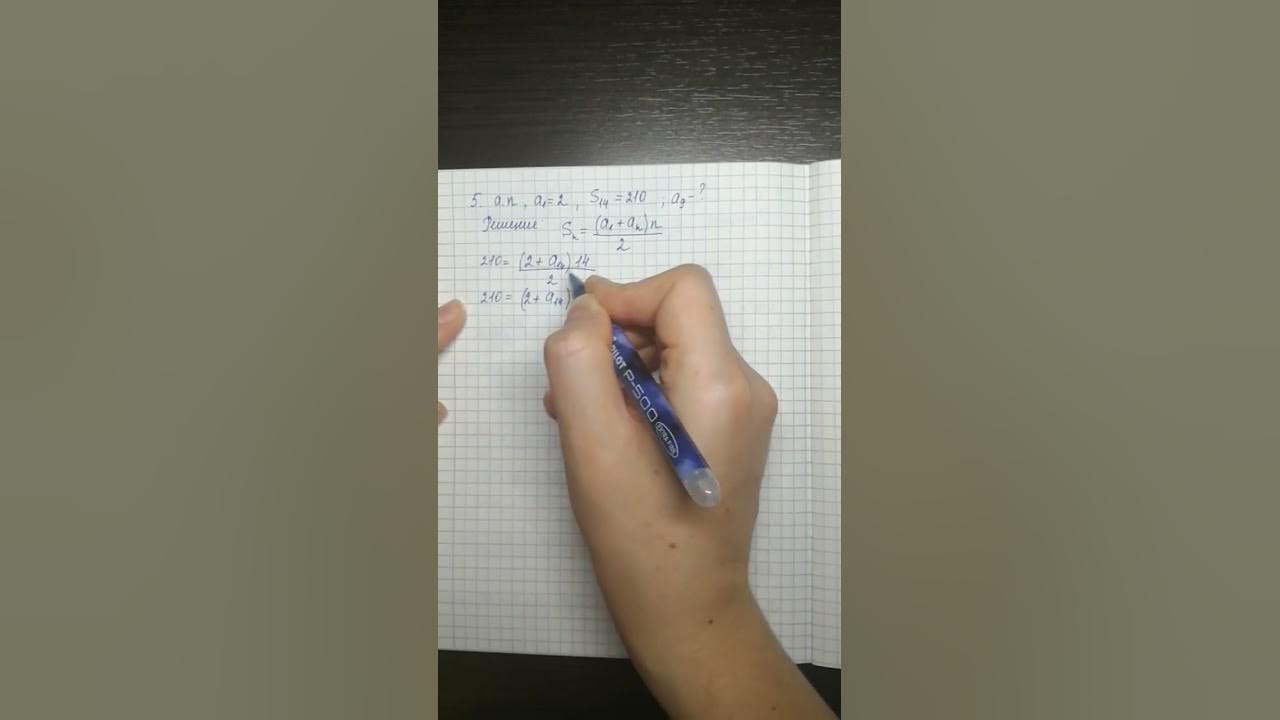 5. а.п, a₁=2, S₁₄=210; a₉-?
Решение Sₙ=(a₁+aₙ)n/2
210=(2+a₁₄)14/2
210=(2+a₁₄)
PILOT P-500 EXTRA FINE